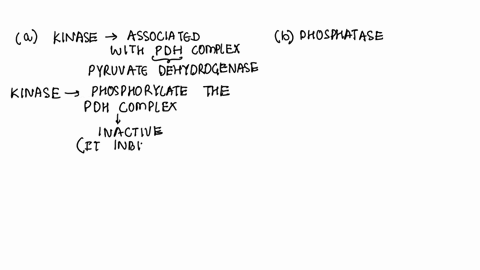 (a) KINASE → ASSOCIATED
WITH PDH COMPLEX
PYRUVATE DEHYDROGENASE
KINASE → PHOSPHORYLATE THE
PDH COMPLEX
↓
INACTIVE
(IT INBI
(b) PHOSPHATASE